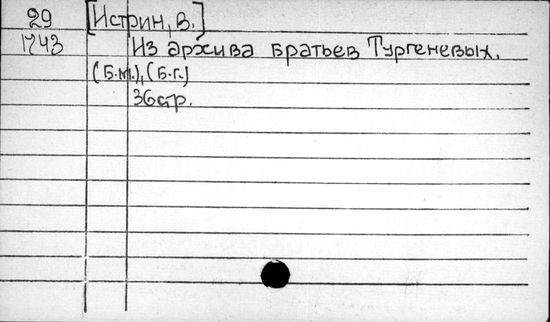 29 [Истрин, В.]
1743 Из архива братьев Тургеневых.
(Б.м.), (Б.г.)
36стр.